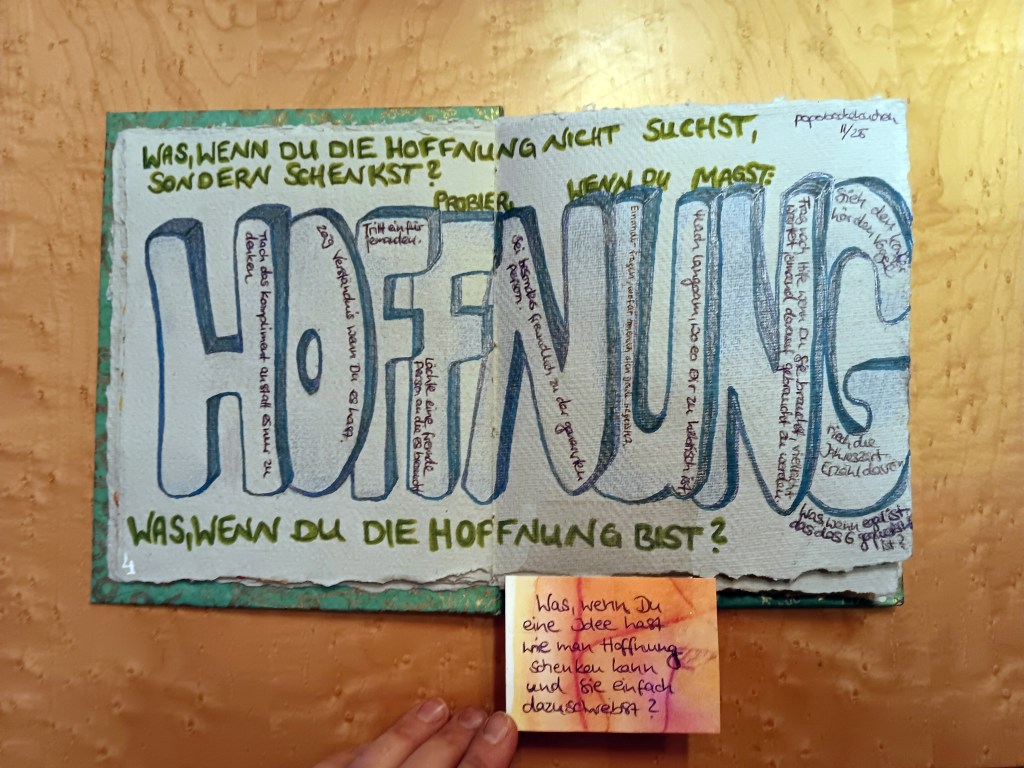 WAS, WENN DU DIE HOFFNUNG NICHT SUCHST,
SONDERN SCHENKST?
PROBIER, WENN DU MAGST:
11/25
HOFFNUNG
Mach das Kompliment anstatt es nur zu
denken
Zeig Verständnis wenn Du es hast.
Tritt ein für
jemanden.
Lächle eine fremde
Person an die es braucht
Sei besonders freundlich zu der genervten
Person.
Mach langsam, wo es Dir zu hektisch ist
Frag nach Hilfe wenn Du sie brauchst, vielleicht
wartet jemand darauf gebraucht zu werden.
Riech die
Jahreszeit
Erzähl davon
Was, wenn egal ist,
dass das G gequetscht
ist?
WAS, WENN DU DIE HOFFNUNG BIST?
4
Was, wenn Du
eine Idee hast
wie man Hoffnung
schenken kann
und Sie einfach
dazuschreibst?